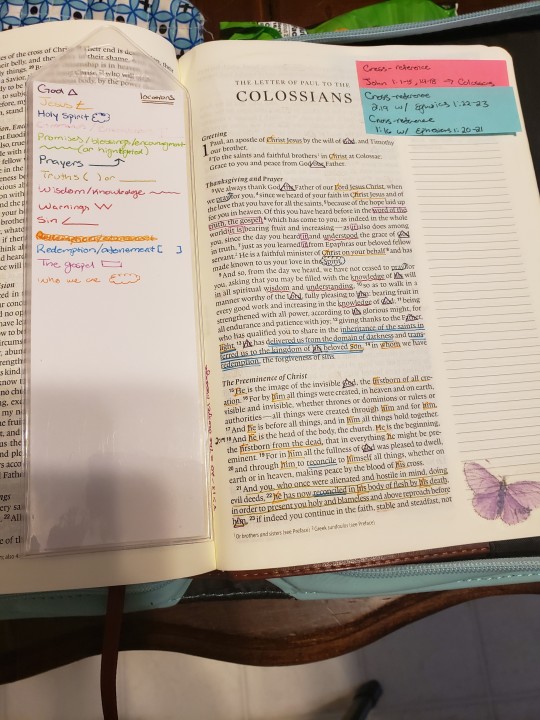 God
Jesus
Holy Spirit
locations
Promises/blessings/encouragment
(or highlighted)
Prayers
Truths ( ) or
Wisdom/Knowledge
Warnings
Sin
Redemption/atonement [ ]
The gospel
Who we are
Cross-reference
John → Colossians
Cross-reference
2:19 w/ Ephesians 1:22-23
Cross-reference
1:16 w/ Ephesians 1:20-21
THE LETTER OF PAUL TO THE
COLOSSIANS
Greeting
1 Paul, an apostle of Christ Jesus by the will of God, and Timothy
our brother,
2 To the saints and faithful brothers in Christ at Colossae:
Grace to you and peace from God our Father.
Thanksgiving and Prayer
3 We always thank God, the Father of our Lord Jesus Christ, when
we pray for you, 4 since we heard of your faith in Christ Jesus and of
the love that you have for all the saints, 5 because of the hope laid up
for you in heaven. Of this you have heard before in the word of the
truth, the gospel, 6 which has come to you, as indeed in the whole
world it is bearing fruit and increasing—as it also does among
you, since the day you heard it and understood the grace of God
in truth, 7 just as you learned it from Epaphras our beloved fellow
servant. He is a faithful minister of Christ on your behalf 8 and has
made known to us your love in the Spirit.
9 And so, from the day we heard, we have not ceased to pray for
you, asking that you may be filled with the knowledge of his will
in all spiritual wisdom and understanding, 10 so as to walk in a
manner worthy of the Lord, fully pleasing to him: bearing fruit in
every good work and increasing in the knowledge of God; 11 being
strengthened with all power, according to his glorious might, for
all endurance and patience with joy; 12 giving thanks to the Father,
who has qualified you to share in the inheritance of the saints in
light. 13 He has delivered us from the domain of darkness and trans-
ferred us to the kingdom of his beloved Son, 14 in whom we have
redemption, the forgiveness of sins.
The Preeminence of Christ
15 He is the image of the invisible God, the firstborn of all cre-
ation. 16 For by him all things were created, in heaven and on earth,
visible and invisible, whether thrones or dominions or rulers or
authorities—all things were created through him and for him.
17 And he is before all things, and in him all things hold together.
18 And he is the head of the body, the church. He is the beginning,
the firstborn from the dead, that in everything he might be pre-
eminent. 19 For in him all the fullness of God was pleased to dwell,
20 and through him to reconcile to himself all things, whether on
earth or in heaven, making peace by the blood of his cross.
21 And you, who once were alienated and hostile in mind, doing
evil deeds, 22 he has now reconciled in his body of flesh by his death,
in order to present you holy and blameless and above reproach before
him, 23 if indeed you continue in the faith, stable and steadfast, not